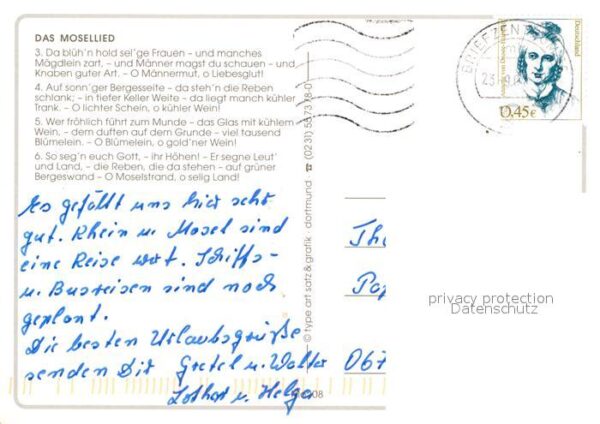 DAS MOSELLIED
3. Da blüh'n hold sel'ge Frauen – und manches
Mägdlein zart, – und Männer magst du schauen – und
Knaben guter Art. – O Männermut, o Liebesglut!
4. Auf sonn'ger Bergesseite – da steh'n die Reben
schlank; – in tiefer Keller Weite – da liegt manch kühler
Trank. – O lichter Schein, o kühler Wein!
5. Wer fröhlich führt zum Munde – das Glas mit kühlem
Wein, – dem duften auf dem Grunde – viel tausend
Blümelein. – O Blümelein, o gold'ner Wein!
6. So seg'n euch Gott, – ihr Höhen! – Er segne Leut'
und Land, – die Reben, die da stehen – auf grüner
Bergeswand – O Moselstrand, o selig Land!
Es gefällt uns hier sehr
gut. Rhein u. Mosel sind
eine Reise wert. Schiffs-
u. Busreisen sind noch
geplant.
Die besten Urlaubsgrüße
senden Dir Gretel u. Walter
Lothar u. Helga
© type art satz & grafik · dortmund
BRIEFZEN
Deutschland
0,45€
Th
Pap
067
privacy protection
Datenschutz